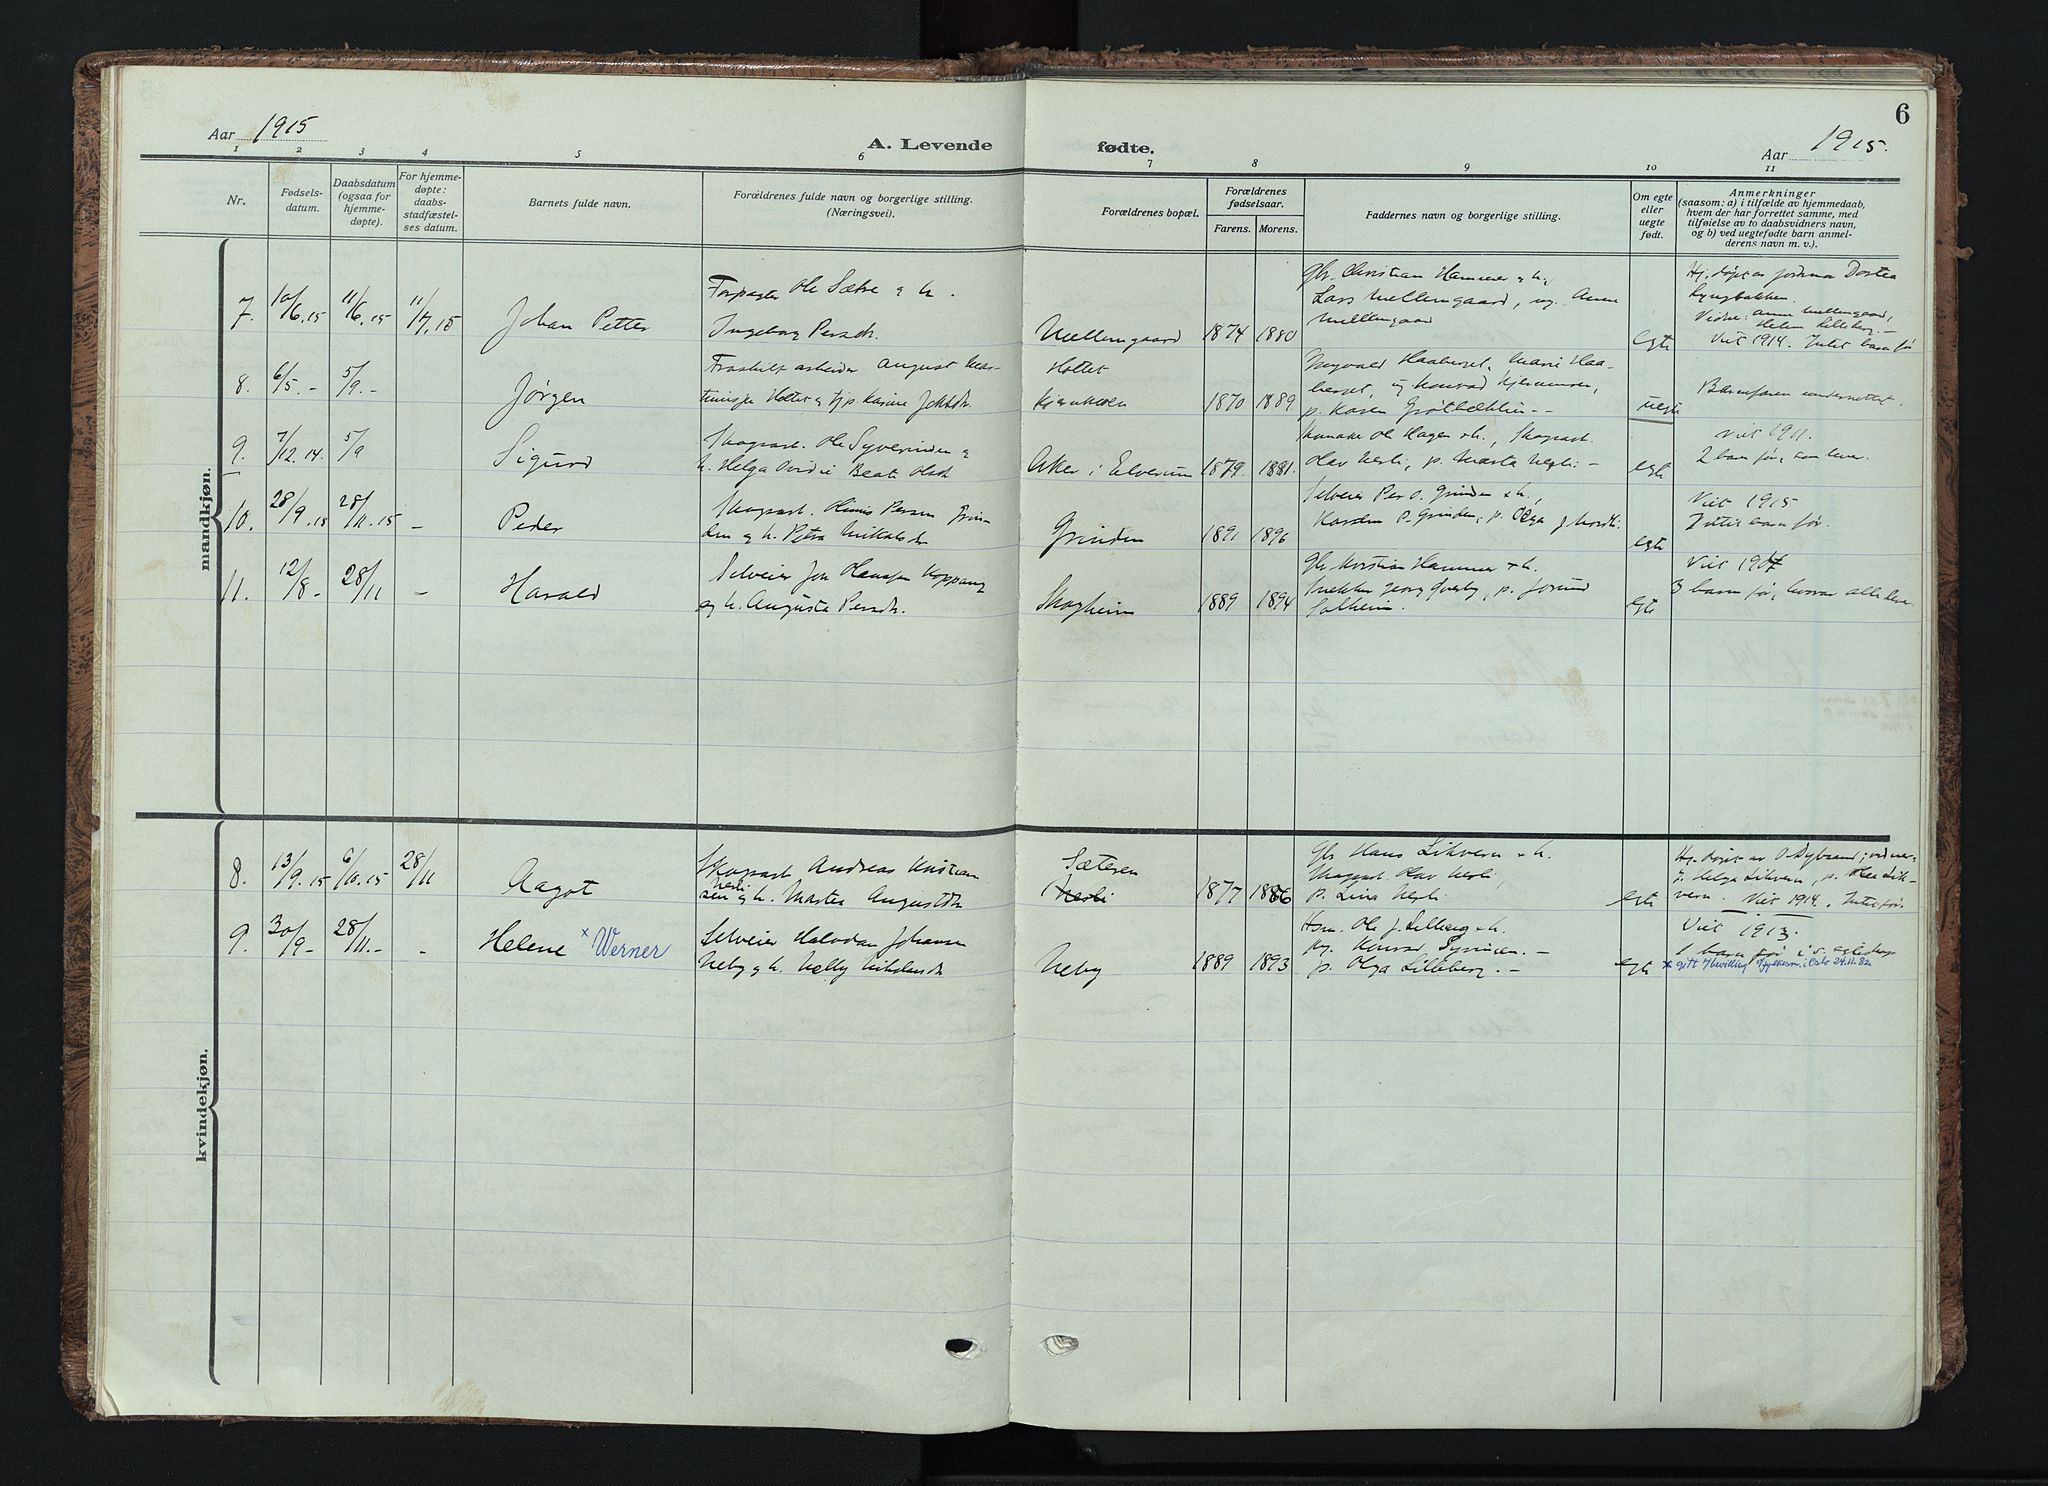 6
Aar 1915
A. Levende fødte.
Aar 1915.
1 2 3 4 5 6 7 8 9 10 11
Nr.
Fødsels-
datum.
Daabsdatum
(ogsaa for
hjemme-
døpte).
For hjemme-
døpte:
daabs-
stadfæstel-
ses datum.
Barnets fulde navn.
Forældrenes fulde navn og borgerlige stilling.
(Næringsvei).
Forældrenes bopæl.
Forældrenes
fødselsaar.
Farens. Morens.
Faddernes navn og borgerlige stilling.
Om egte
eller
uegte
født.
Anmerkninger
(saasom: a) i tilfælde av hjemmedaab,
hvem der har forrettet samme, med
tilføielse av to daabsvidners navn,
og b) ved uegtefødte barn anmel-
derens navn m. v.).
mandkjøn.
7. 10/6.15 11/6.15 11/7.15 Johan Petter
Forpagter Ole Sætre og h.
Ingeborg Persdtr.
Mellemgaard 1874 1880
Gbr. Christian Hammer og h.,
Lars Mellemgaard, ug. Anne
Mellemgaard
egte
Hj. døpt av jordmor Dortea
Lyngbakken.
Vidne: Anne Mellemgaard,
Helen Lilleberg.-
Viet 1914. Intet barn før
8. 6/5 - 5/9 - Jørgen
Fraskilt arbeider August
1870 1889.
p. Karen
uegte
Barnefaren underrettet.
9. 7/12.14. 5/9 Sigurd
Skogsarb. Ole Syversinden og
h. Helga Ovidie Beate Olsdtr
Aker i Elverum 1879. 1881.
Ole Hagen + h., Skogsarb.
Olav Nesli, p. Marta Nesli -
egte
Viet 1911.
2 barn før, som lever.
10. 28/9.15 28/11.15 - Peder
Skogsarb. Persen Grin-
den og h. Petra
Grinden 1891 1896
Selveier Per O. Grinden + h.,
Karsten P. Grinden, p. Olga
egte
Viet 1915
Intet barn før.
11. 12/8 - 28/11 - Harald
Selveier Jon Hansen Koppang
og h. Auguste Persdtr.
Skogheim 1889 1894
Gbr. Kristian Hammer + h.
Snekker Georg Øverby, p. Jorund
Solheim.
egte
Viet 1907
3 barn før, hvorav alle lever.
kvindekjøn.
8. 13/9.15 6/10.15 28/11 Aagot
Skogsarb. Andreas Kristian
sen Nesli og h. Marten Augustdtr
Sæteren
(Nesli 1877 1886
Gbr. Hans Likvern + h.
Skogsarb. Olav Nesli,
p. Lina Nesli.
egte
Helga Likvern, p. Olea Lik-
vern. Viet 1914. Intet før.
9. 30/9 - 28/11.- - Helene x Werner
Selveier Halvdan Johansen
Neby og h. Nelly
Neby 1889 1893
Hsm. Ole J. Lilleberg + h.
Konrad
p. Olga Lilleberg. -
egte
Viet 1913.
1 barn før i s. egteskap
x gitt v/bevilling Fylkesm. i Oslo 24.11.82